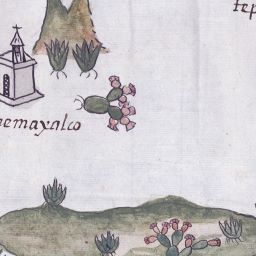 tep
nemaxalco